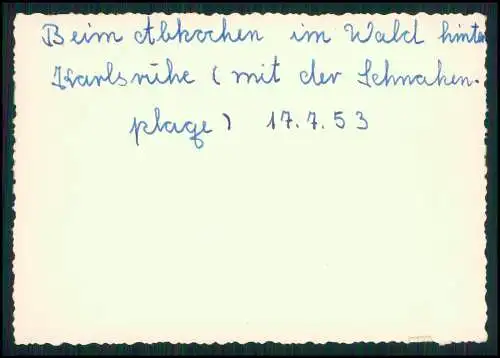 Beim Abkochen im Wald hinter
Karlsruhe (mit der Schnaken-
plage) 17.7.53